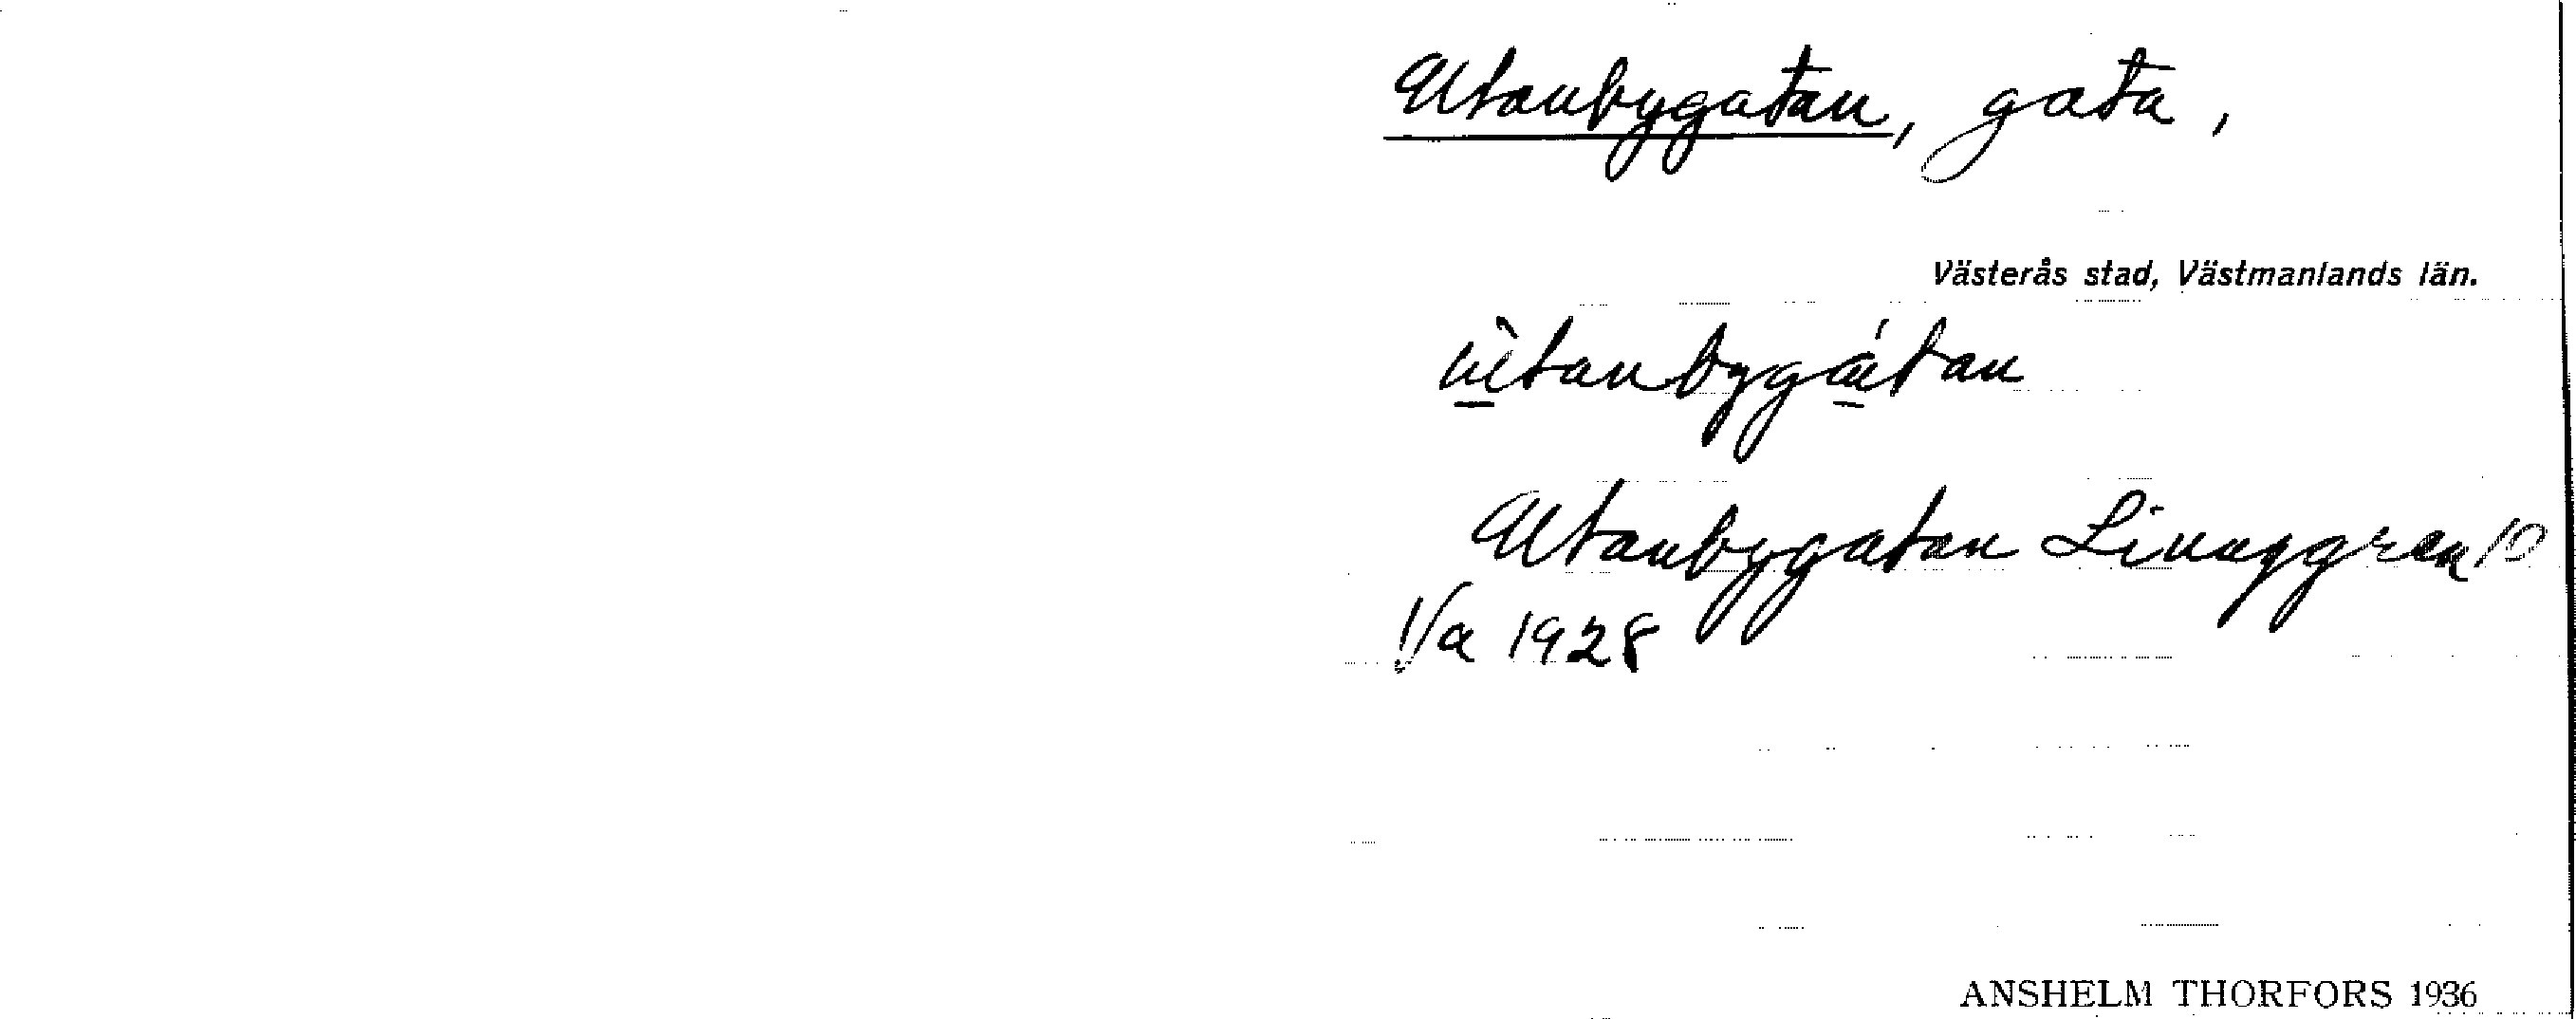 Utanbygatan, gata,
Västerås stad, Västmanlands län.
ùtanbygátan
Utanbygatan
1928
ANSHELM THORFORS 1936